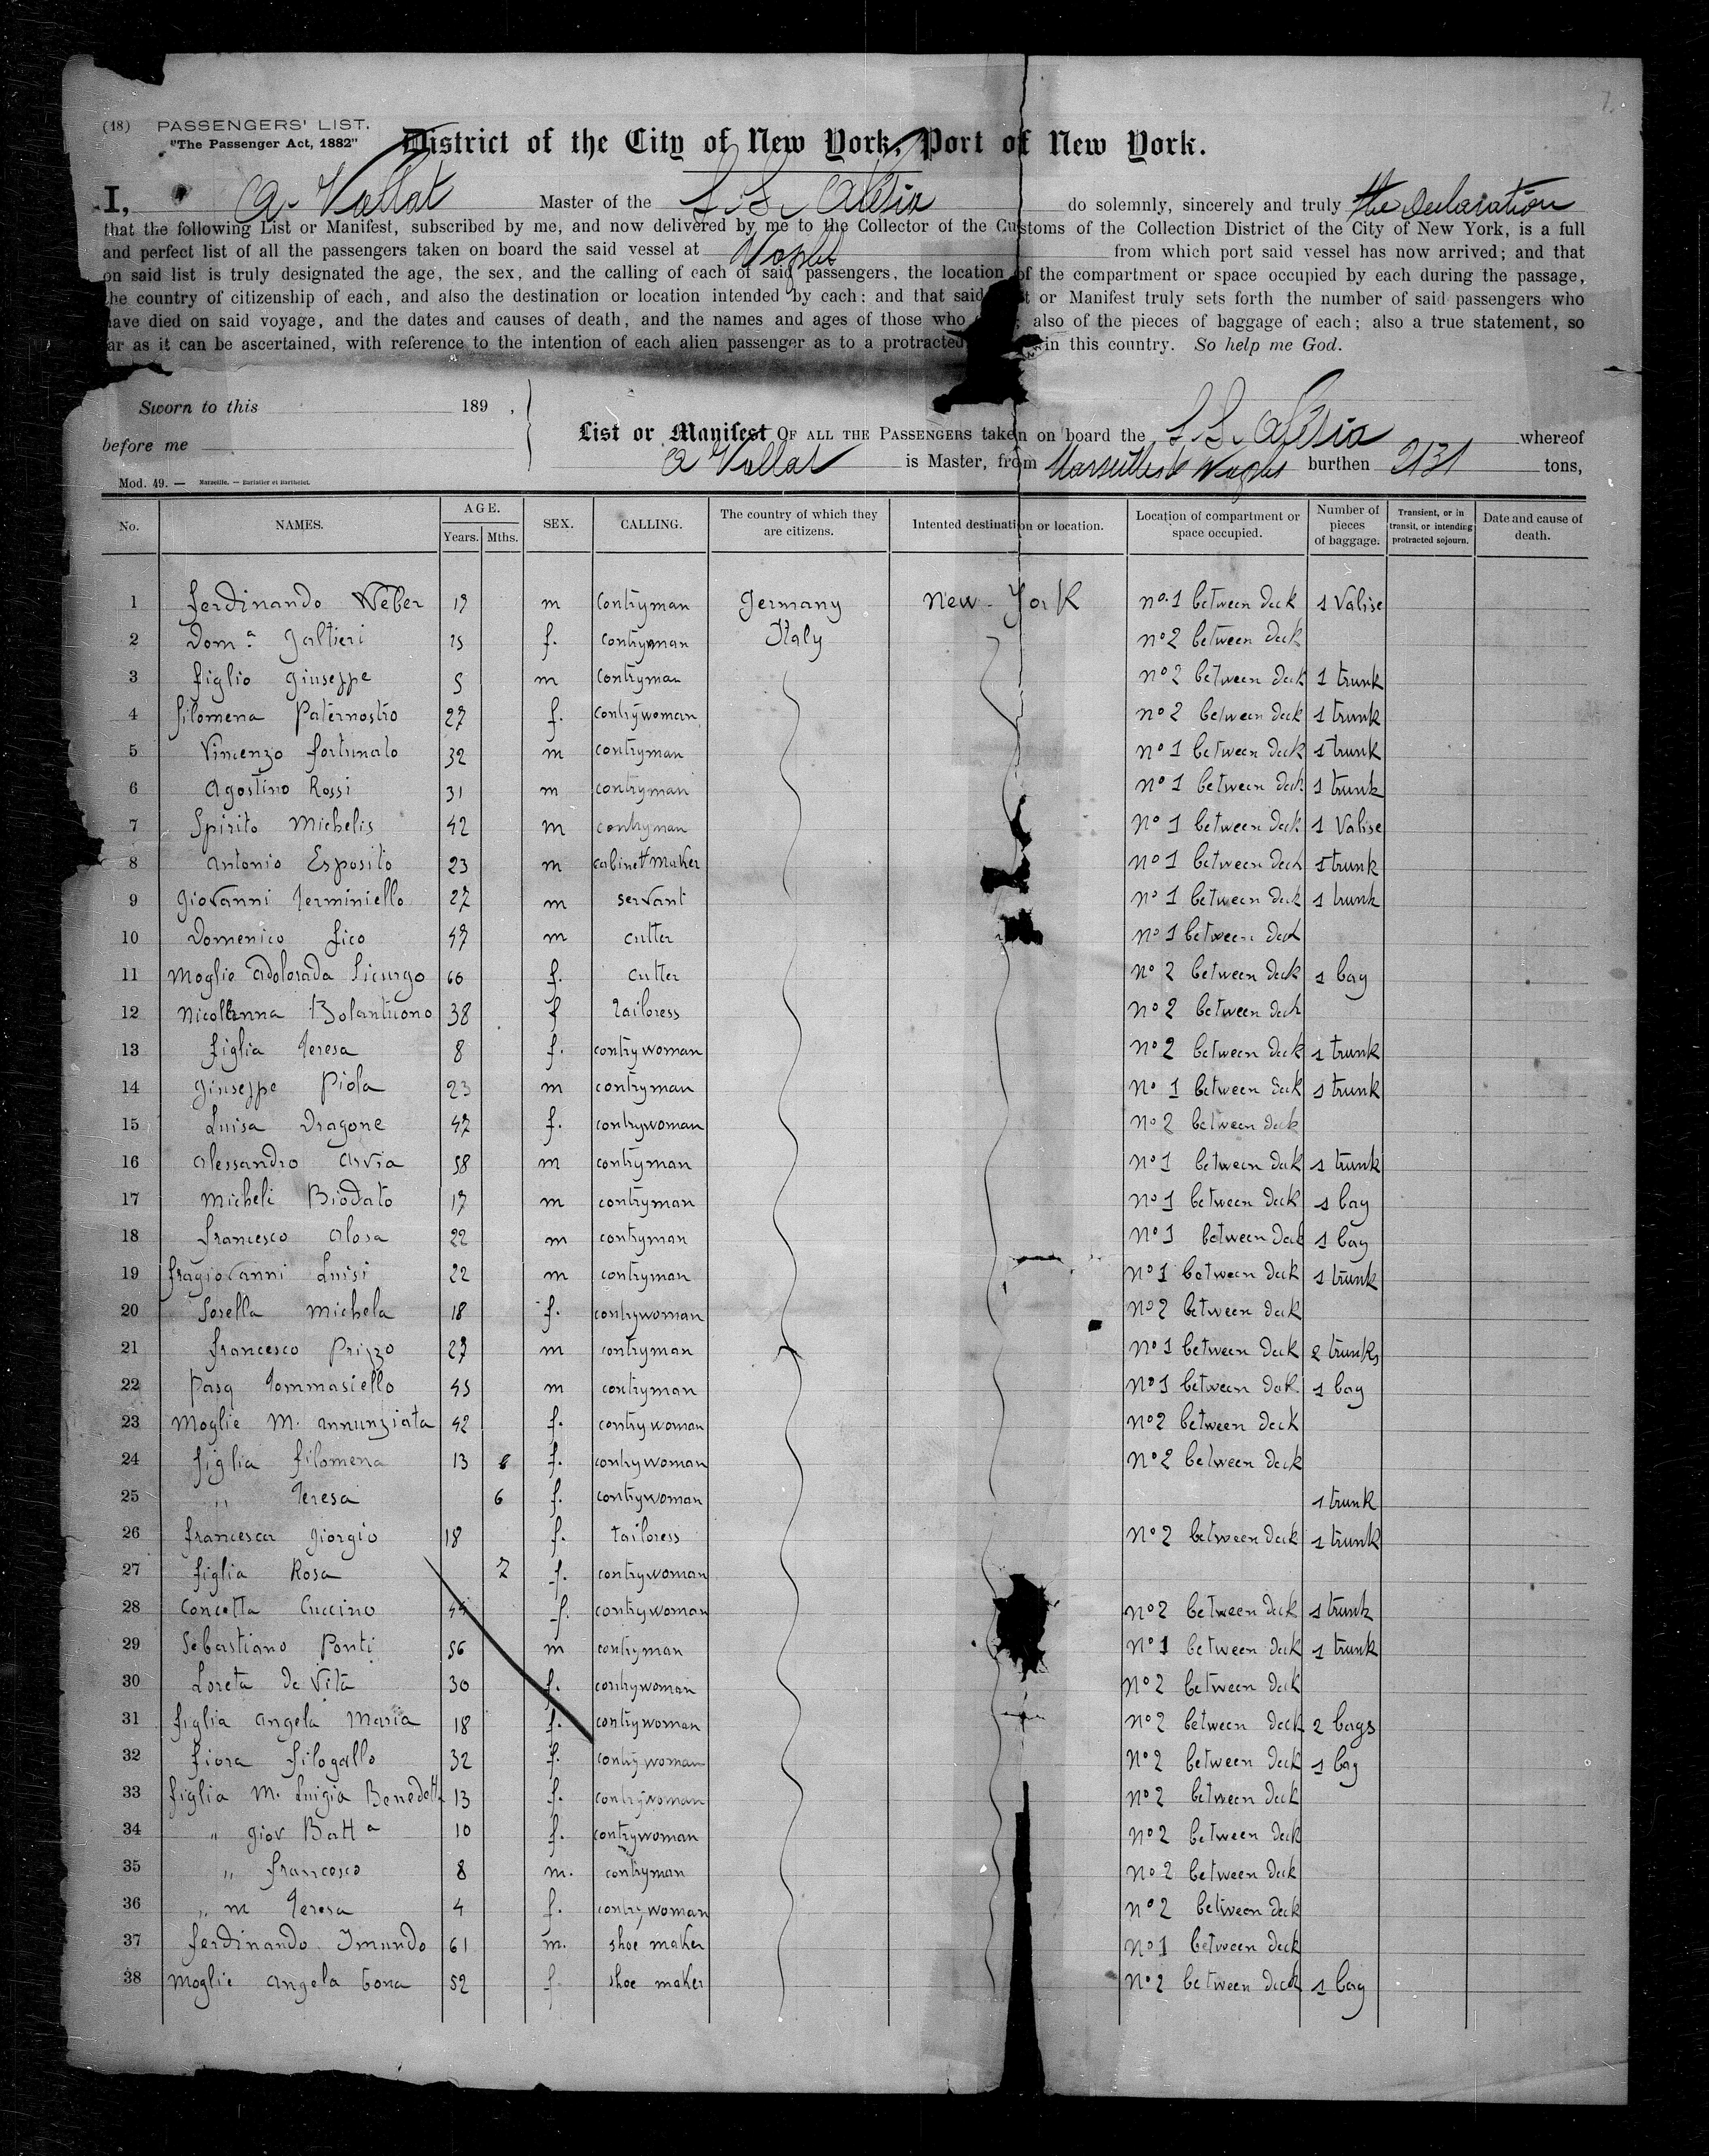 (18) PASSENGERS' LIST.
"The Passenger Act, 1882"
District of the City of New York, Port of New York.
I, A. Vallat Master of the S.S. Alesia do solemnly, sincerely and truly the Declaration
that the following List or Manifest, subscribed by me, and now delivered by me to the Collector of the Customs of the Collection District of the City of New York, is a full
and perfect list of all the passengers taken on board the said vessel at Naples from which port said vessel has now arrived; and that
on said list is truly designated the age, the sex, and the calling of each of said passengers, the location of the compartment or space occupied by each during the passage,
the country of citizenship of each, and also the destination or location intended by each: and that said or Manifest truly sets forth the number of said passengers who
have died on said voyage, and the dates and causes of death, and the names and ages of those who also of the pieces of baggage of each; also a true statement, so
far as it can be ascertained, with reference to the intention of each alien passenger as to a protracted in this country. So help me God.
Sworn to this 189 ,
before me
List or Manifest OF ALL THE PASSENGERS taken on board the S.S. Alesia whereof
A Vallat is Master, from Marseilles & Naples burthen 2131 tons,
Mod. 49. — Marseille. — Barlatier et Barthelet.
No. NAMES. AGE. Years. Mths. SEX. CALLING. The country of which they are citizens. Intented destination or location. Location of compartment or space occupied. Number of pieces of baggage. Transient, or in transit, or intending protracted sejourn. Date and cause of death.
1 ferdinando Weber 17 m contryman Germany New-York no.1 between deck 1 Valise
2 Dom.a Galtieri 25 f. contryman Italy no 2 between deck
3 figlio Giuseppe 5 m contryman no 2 between deck 1 trunk
4 filomena Paternostro 27 f. contrywoman no 2 between deck 1 trunk
5 Vincenzo fortunato 32 m contryman no 1 between deck 1 trunk
6 Agostino Rossi 31 m contryman no 1 between deck 1 trunk
7 Spirito Michelis 42 m contryman no 1 between deck 1 Valise
8 Antonio Esposito 23 m cabinet maker no 1 between deck 1 trunk
9 Giovanni Terminiello 27 m servant no 1 between deck 1 trunk
10 Domenico fico 47 m cutter no 1 between deck
11 Moglie Adolorada Licurgo 60 f. cutter no 2 between deck 1 bag
12 Nicollanna Bolantuono 38 f tailoress no 2 between deck
13 figlia Teresa 8 f. contrywoman no 2 between deck 1 trunk
14 Giuseppe Piola 23 m contryman no 1 between deck 1 trunk
15 Luisa Dragone 47 f. contrywoman no 2 between deck
16 Alessandro Arvia 58 m contryman no 1 between deck 1 trunk
17 Micheli Biodato 17 m contryman no 1 between deck 1 bag
18 francesco Alosa 22 m contryman no 1 between deck 1 bag
19 fragiovanni Luisi 22 m contryman no 1 between deck 1 trunk
20 Sorella Michela 18 f. contrywoman no 2 between deck
21 francesco Prizzo 27 m contryman no 1 between deck 2 trunks
22 Pasq Tommasiello 45 m contryman no 1 between deck 1 bag
23 Moglie M. Annunziata 42 f. contrywoman no 2 between deck
24 figlia filomena 13 6 f. contrywoman no 2 between deck
25 " Teresa 6 f. contrywoman 1 trunk
26 francesca Giorgio 18 f. tailoress no 2 between deck 1 trunk
27 figlia Rosa 7 f. contrywoman
28 Concetta Cuccino 44 f. contrywoman no 2 between deck 1 trunk
29 Sebastiano Ponti 56 m contryman no 1 between deck 1 trunk
30 Loreta de Vita 30 f. contrywoman no 2 between deck
31 figlia Angela Maria 18 f. contrywoman no 2 between deck 2 bags
32 fiora filogallo 32 f. contrywoman no 2 between deck 1 bag
33 figlia M. Luigia Benedetta 13 f. contrywoman no 2 between deck
34 " Giov Batta 10 f. contrywoman no 2 between deck
35 " francesco 8 m. contryman no 2 between deck
36 " m Teresa 4 f. contrywoman no 2 between deck
37 ferdinando Imundo 61 m. shoe maker no 1 between deck
38 Moglie Angela Cona 52 f. shoe maker no 2 between deck 1 bag